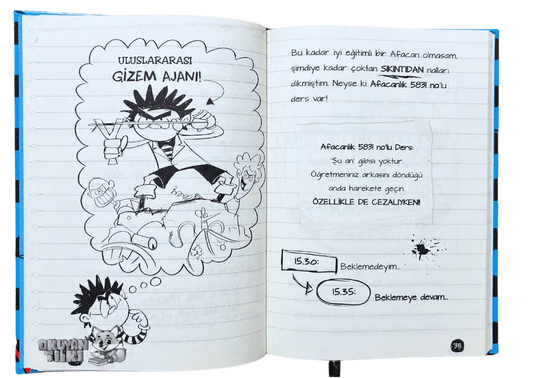 ULUSLARARASI
GİZEM AJANI!
OKUYAN
TİLKİ
Bu kadar iyi eğitimli bir Afacan olmasam,
şimdiye kadar çoktan SIKINTIDAN nalları
dikmiştim. Neyse ki Afacanlık 5831 no'lu
ders var!
Afacanlık 5831 no'lu Ders:
'Şu an' gibisi yoktur.
Öğretmeniniz arkasını döndüğü
anda harekete geçin.
ÖZELLİKLE DE CEZALIYKEN!
15.30:
Beklemedeyim...
15.35:
Beklemeye devam...